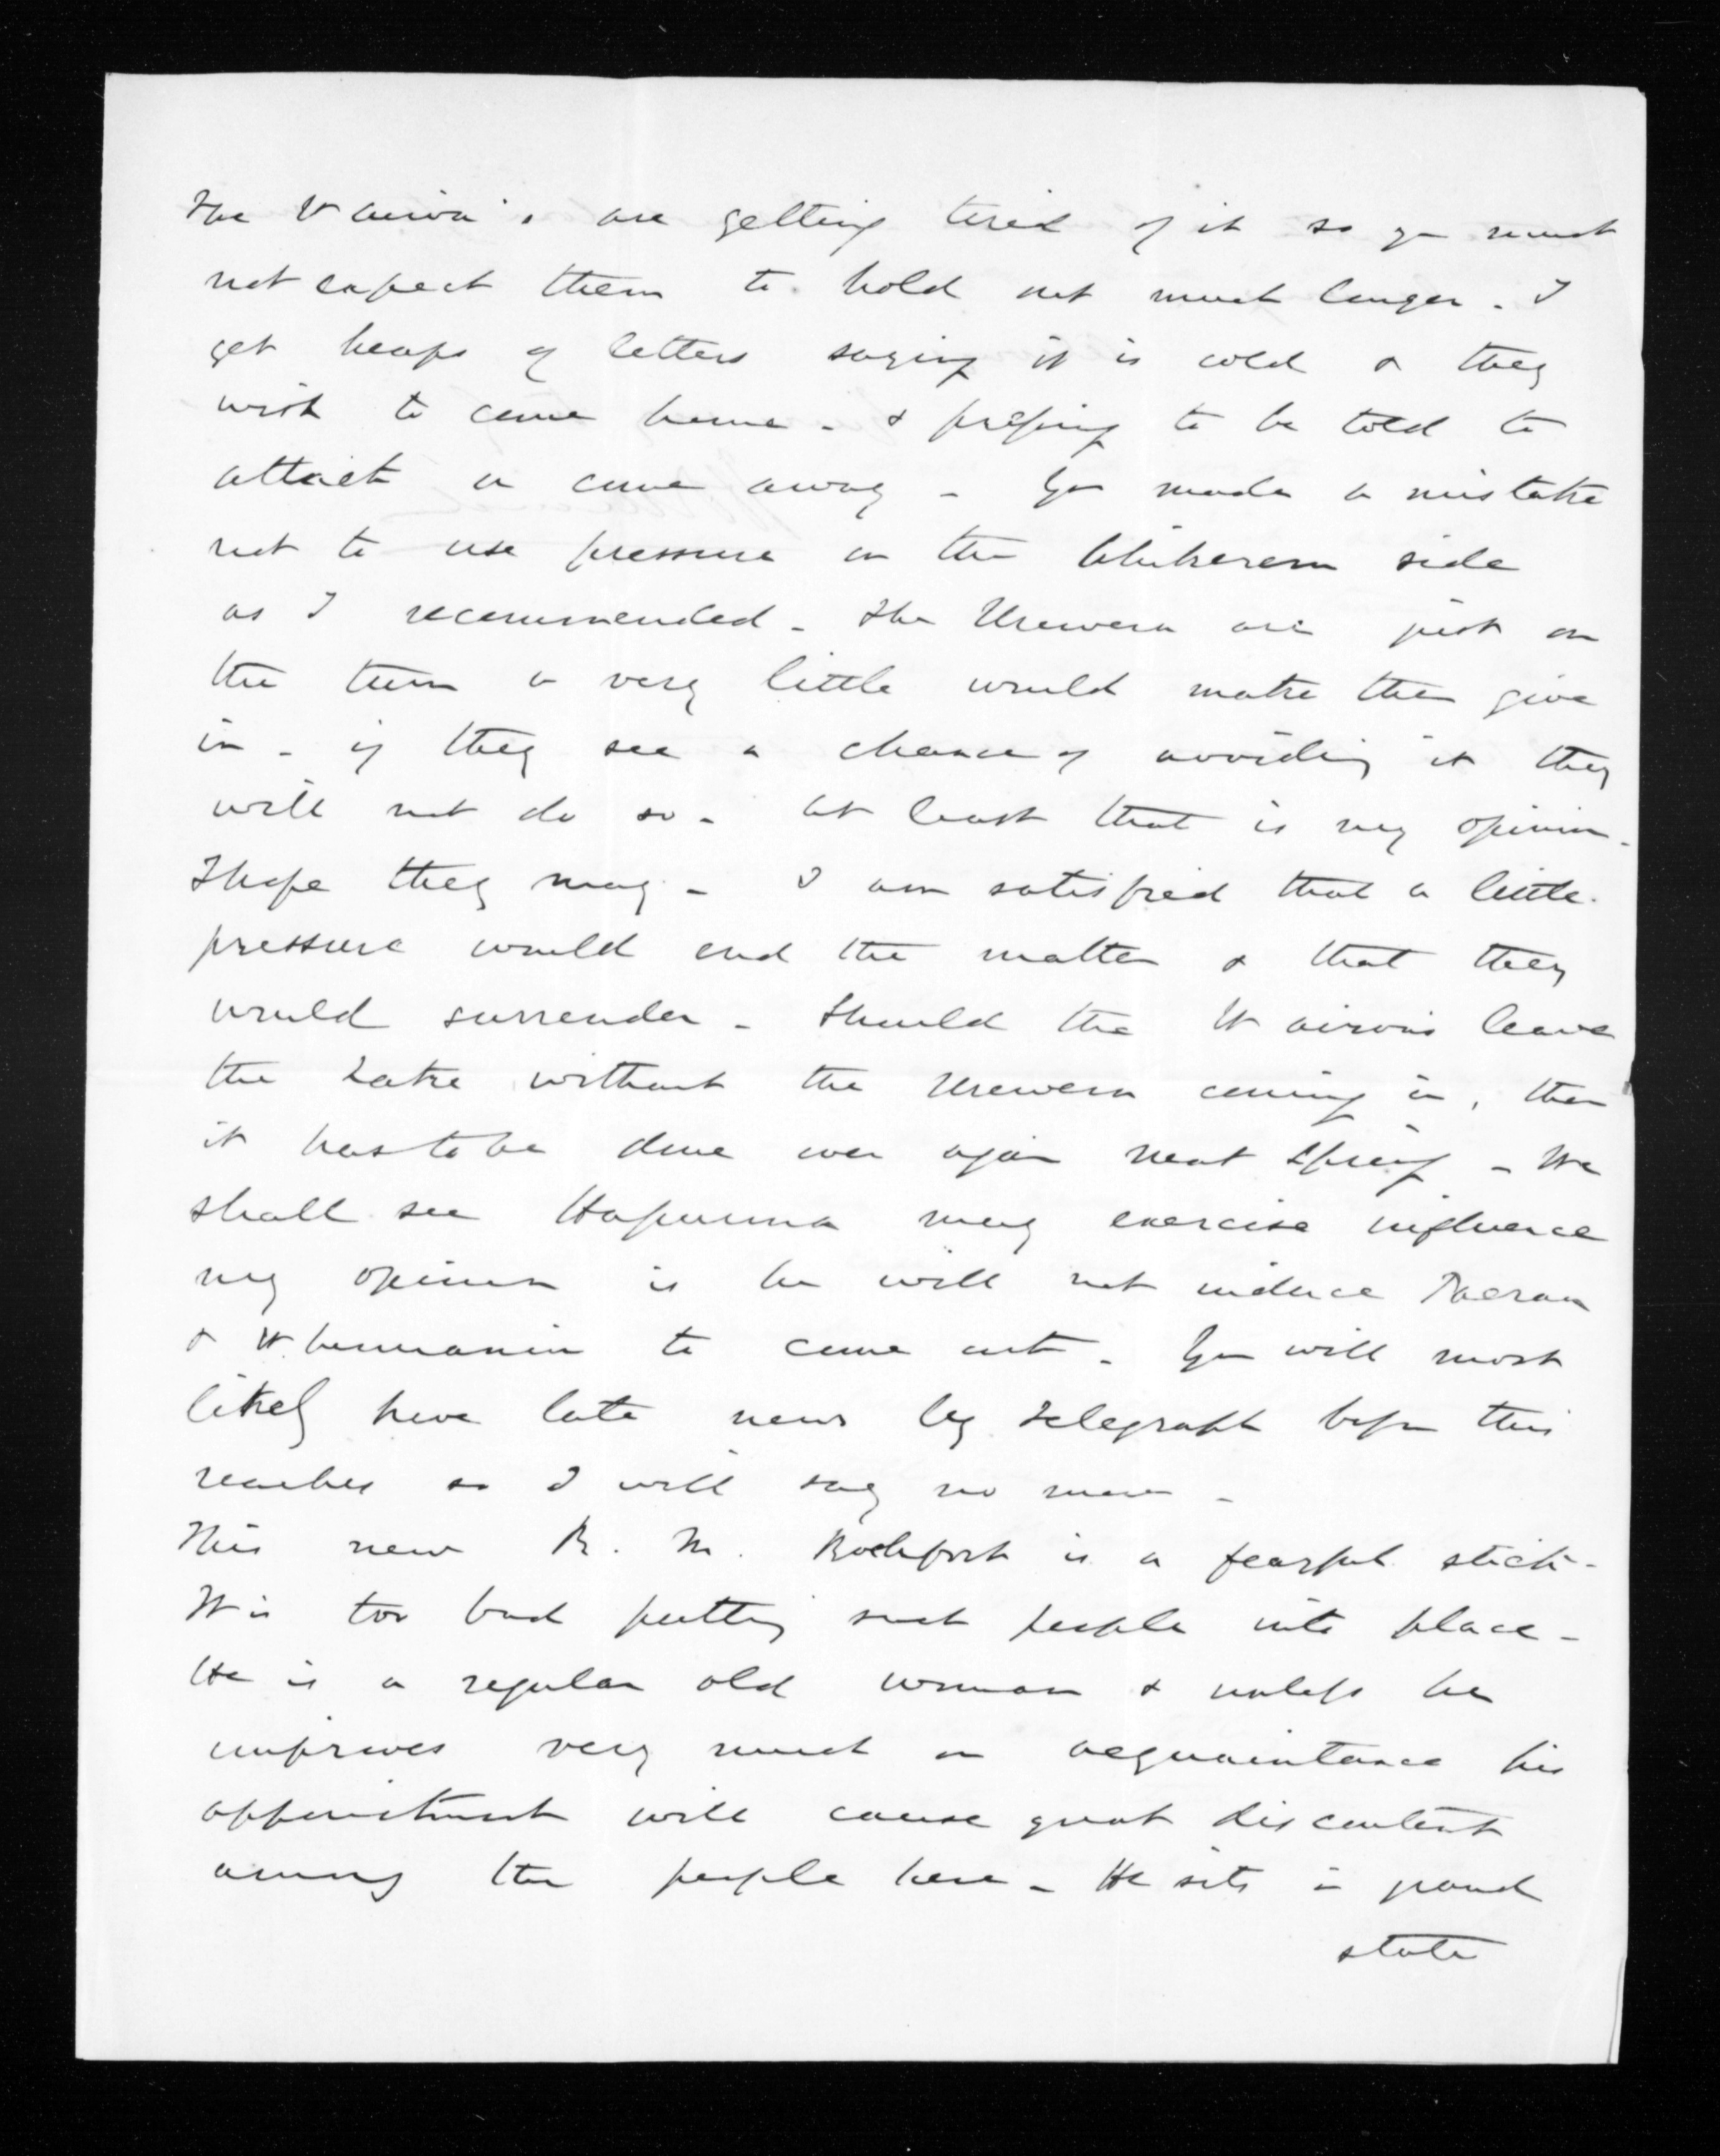 The Wairoa's are getting tired of it so you must
not expect them to hold out much longer. I
get heaps of letters saying it is cold & they
wish to come home - & pressing to be told to
attack or come away - You made a mistake
not to use pressure on the side
as I recommended - The Urewera are just on
the turn a very little would make them give
in - if they see a chance of avoiding it they
will not do so - at least that is my opinion -
I hope they may - I am satisfied that a little
pressure would end the matter & that they
would surrender - Should the Wairoa's leave
the Lake without the Urewera coming in, then
it has to be done over again next Spring - We
shall see Hapurona may exercise influence
my opinion is he will not induce Paerau
& to come out. You will most
likely have late news by telegraph before this
reaches so I will say no more -
This new R. M. Rochfort is a fearful stick -
It is too bad putting such people into place -
He is a regular old woman & unless he
improves very much on acquaintance his
appointment will cause great discontent
among the people here - He sits in grand
state